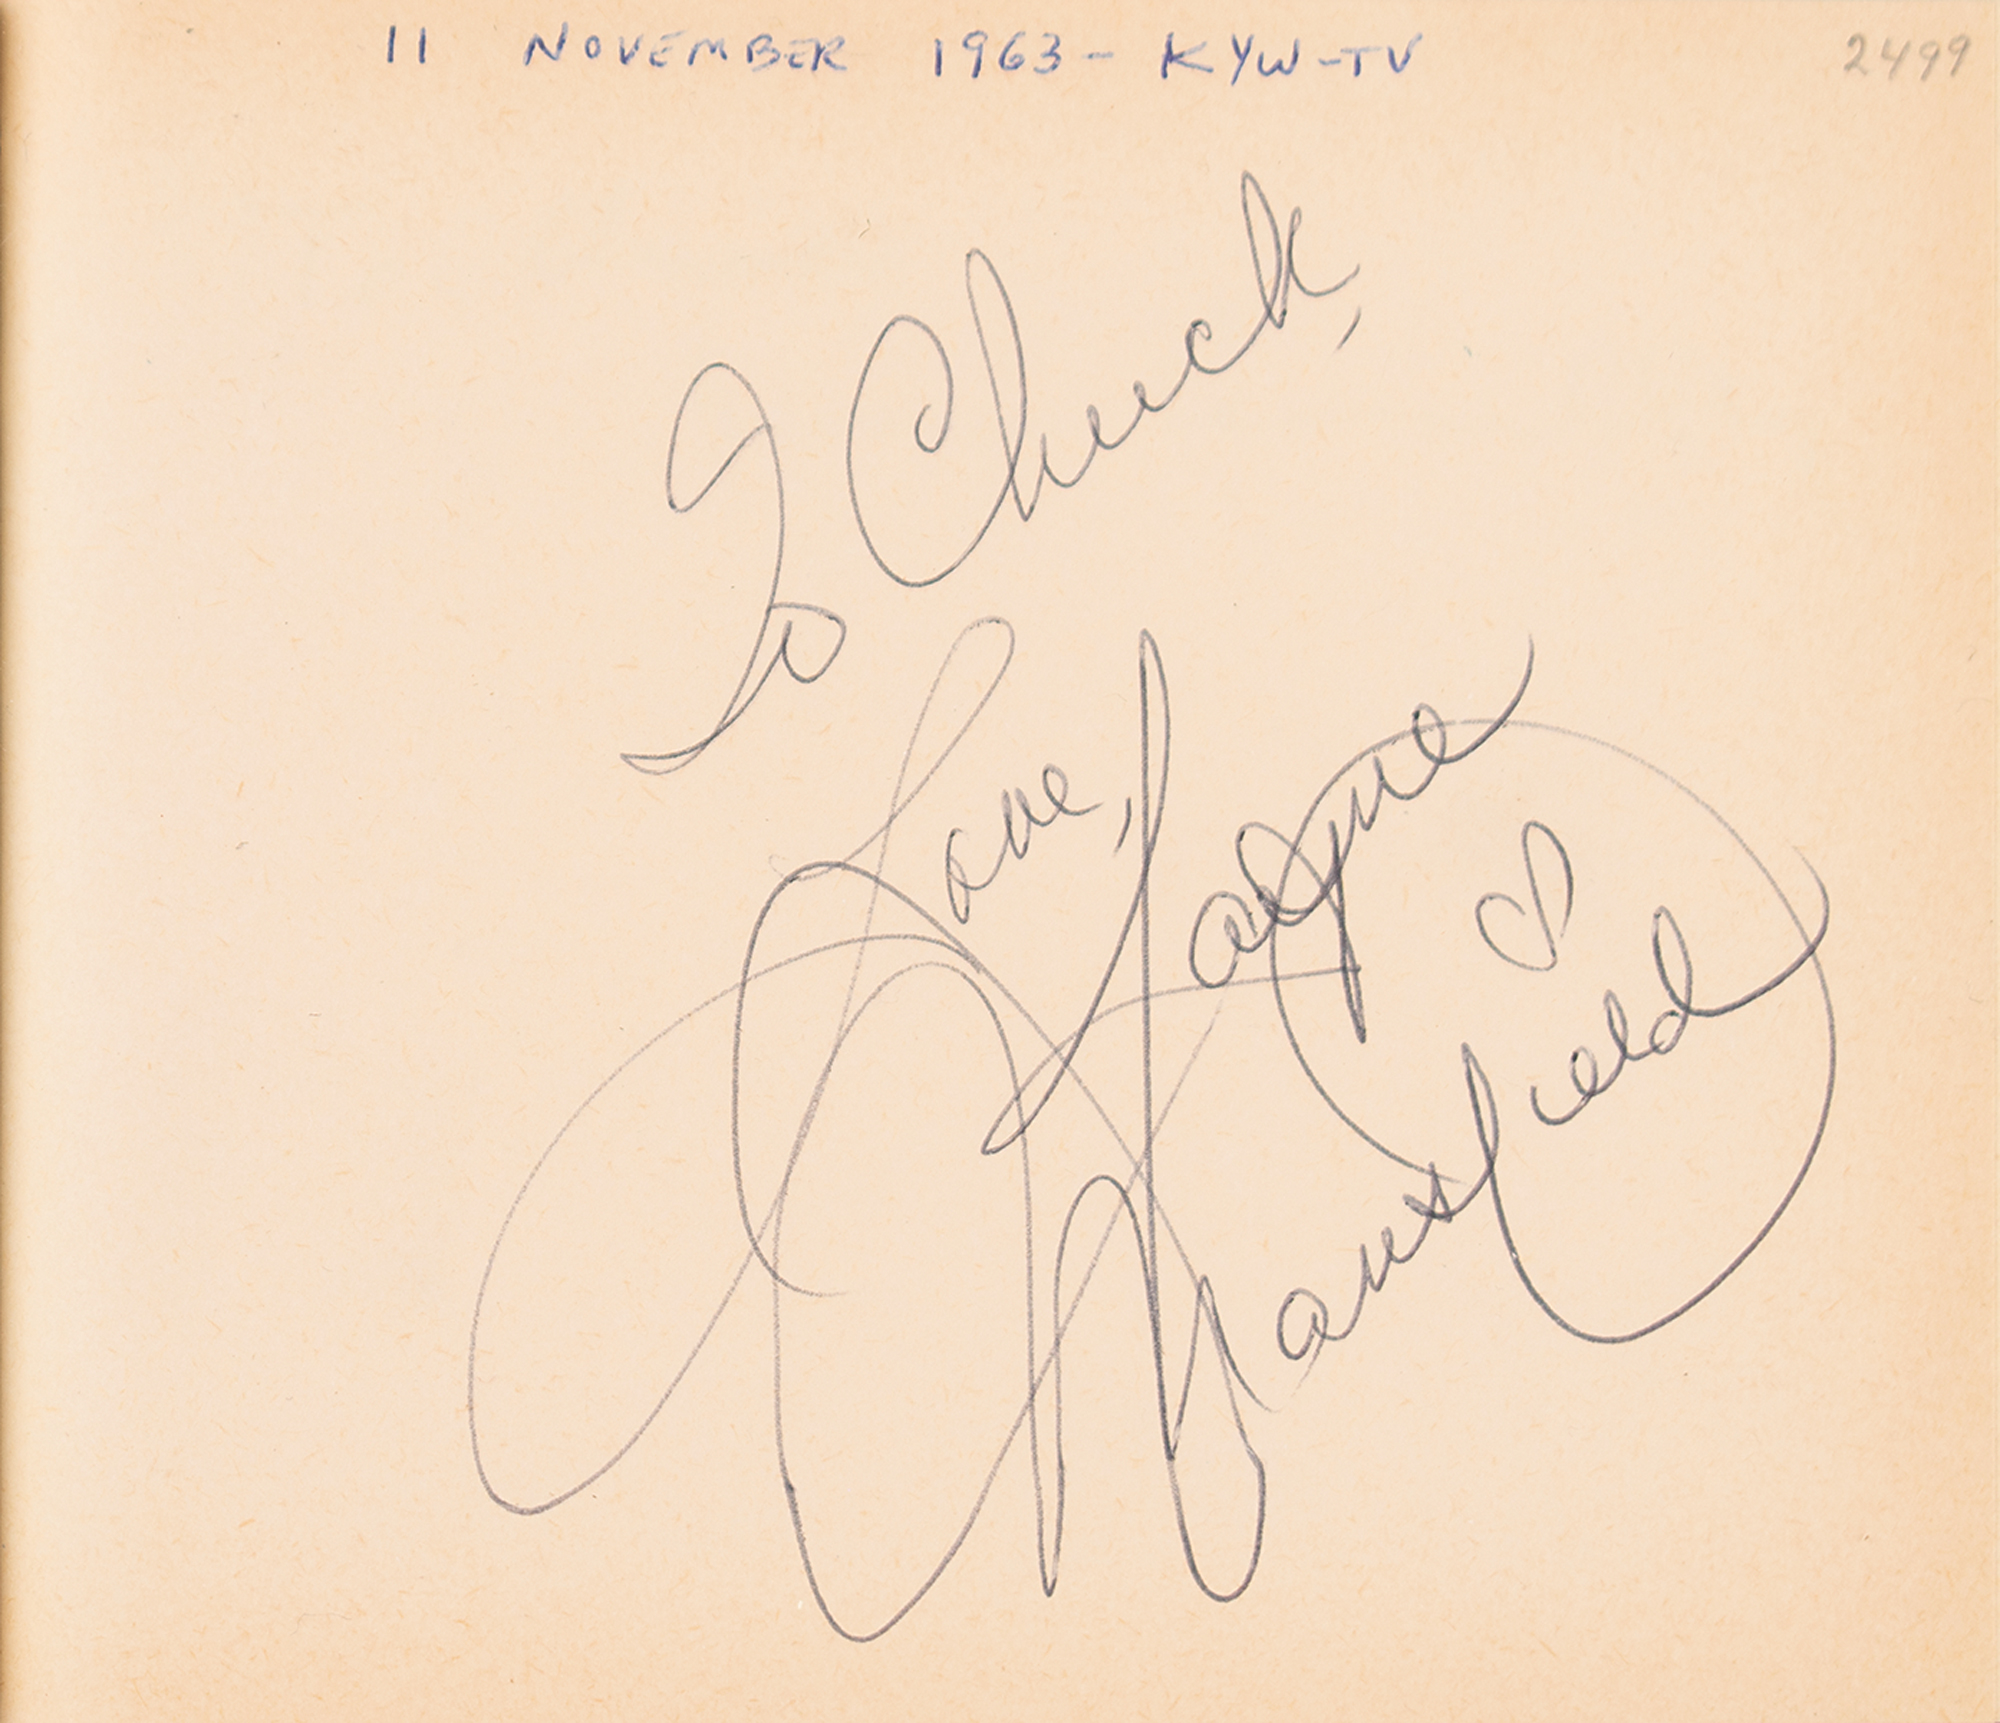 11 NOVEMBER 1963 - KYW-TV
2499
To Chuck,
Love,
Jayne
Mansfield